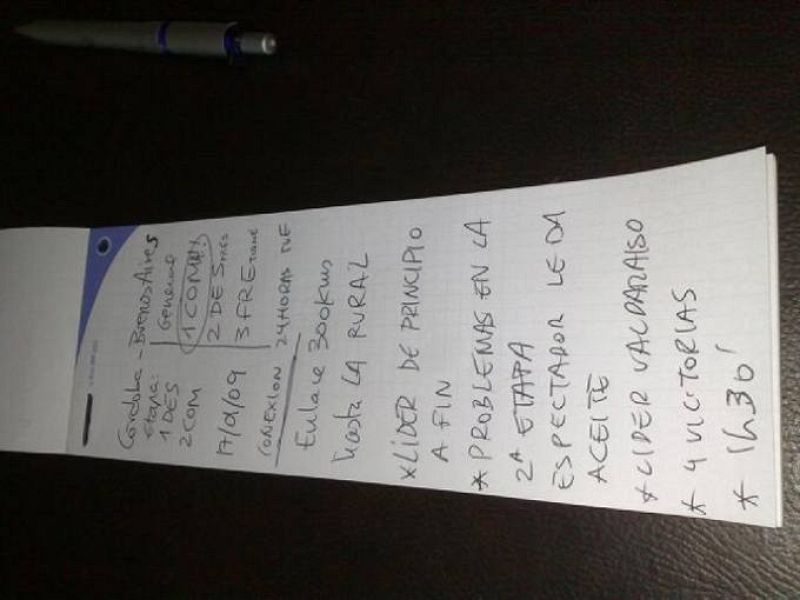 Córdoba - Buenos Aires
Etapa: General
1 DES 1 COMA!!
2 COM 2 DES
17/01/09 3 FRE
CONEXION 24 HORAS TVE
Enlace 300 kms
hasta LA RURAL
* LIDER DE PRINCIPIO
A FIN
* PROBLEMAS EN LA
2ª ETAPA
ESPECTADOR LE DA
ACEITE
* LIDER VALPARAISO
* 4 VICTORIAS
* 1h30'